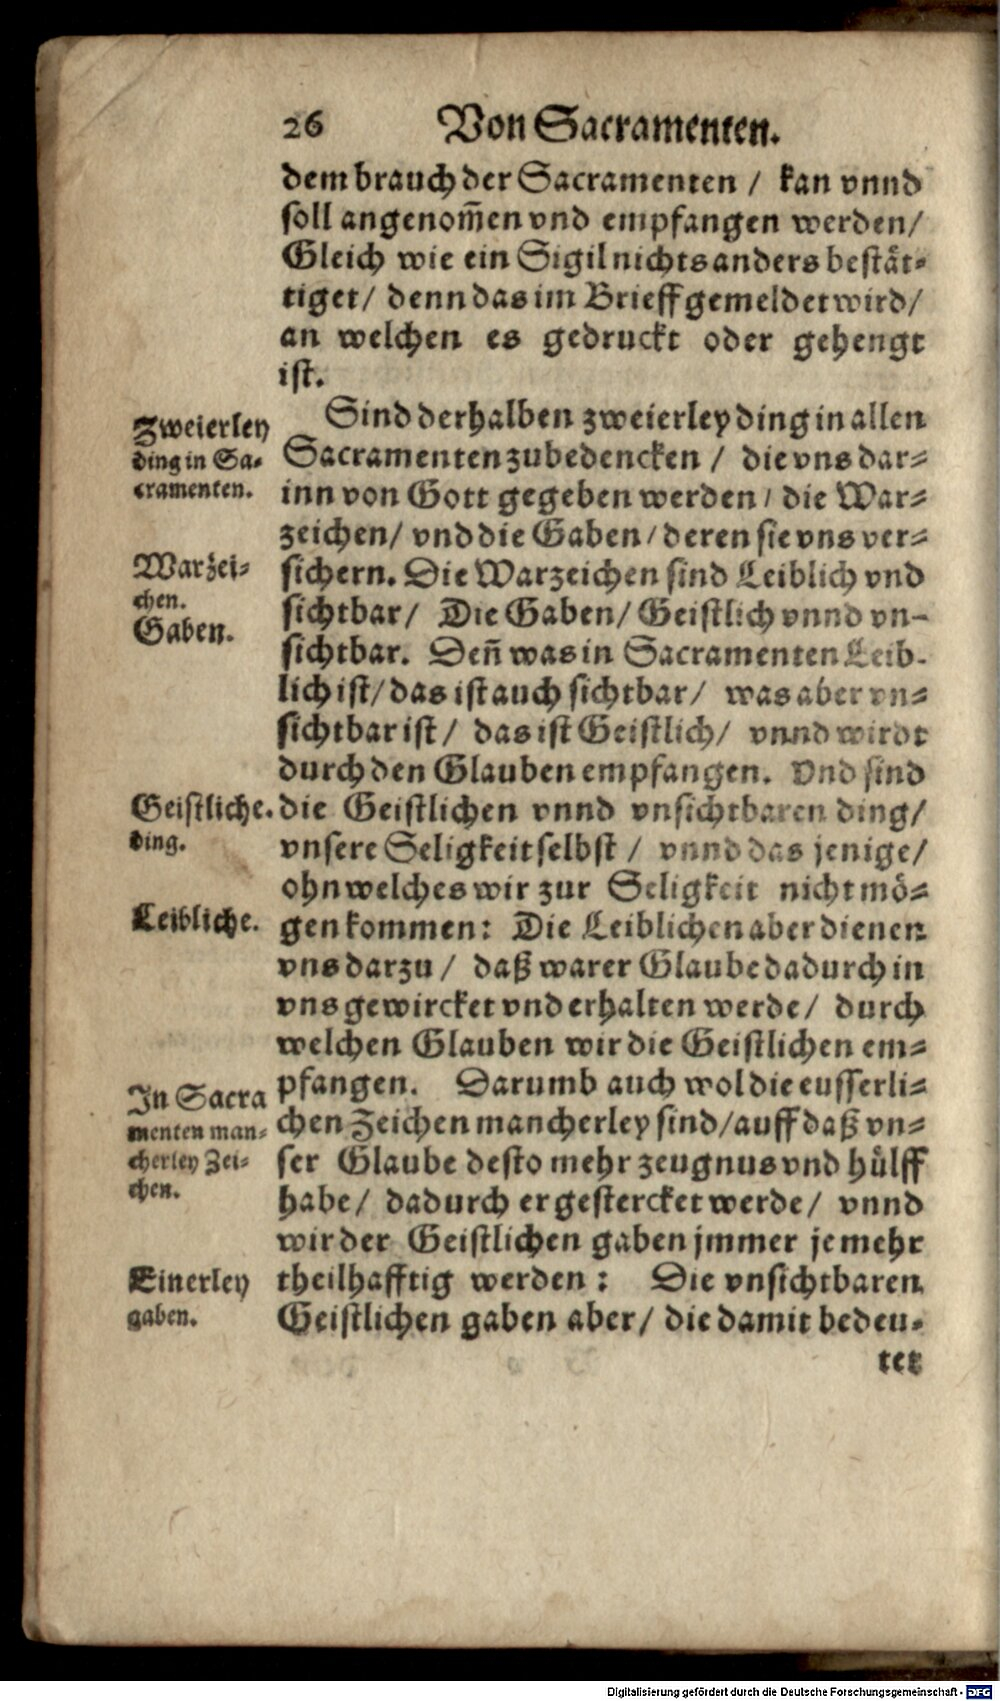 26 Von Sacramenten.
dem brauch der Sacramenten / kan vnnd
soll angenom̃en vnd empfangen werden/
Gleich wie ein Sigil nichts anders bestät-
tiget/ denn das im Brieff gemeldet wird/
an welchen es gedruckt oder gehengt
ist.
Zweierley
ding in Sa-
cramenten.
Sind derhalben zweierley ding in allen
Sacramenten zubedencken / die vns dar-
inn von Gott gegeben werden / die War-
zeichen/ vnd die Gaben / deren sie vns ver-
Warzei-
chen.
Gaben.
sichern. Die Warzeichen sind Leiblich vnd
sichtbar/ Die Gaben/ Geistlich vnnd vn-
sichtbar. Deñ was in Sacramenten Leib-
lich ist/ das ist auch sichtbar/ was aber vn-
sichtbar ist/ das ist Geistlich/ vnnd wirdt
durch den Glauben empfangen. Vnd sind
Geistliche.
ding.
die Geistlichen vnnd vnsichtbaren ding/
vnsere Seligkeit selbst / vnnd das jenige/
ohn welches wir zur Seligkeit nicht mö-
Leibliche.
gen kommen: Die Leiblichen aber dienen
vns darzu / daß warer Glaube dadurch in
vns gewircket vnd erhalten werde/ durch
welchen Glauben wir die Geistlichen em-
In Sacra
menten man-
cherley Zei-
chen.
pfangen. Darumb auch wol die eusserli-
chen Zeichen mancherley sind/ auff daß vn-
ser Glaube desto mehr zeugnus vnd hülff
habe/ dadurch er gestercket werde/ vnnd
wir der Geistlichen gaben jmmer je mehr
Einerley
gaben.
theilhafftig werden: Die vnsichtbaren
Geistlichen gaben aber/ die damit bedeu-
tet
Digitalisierung gefördert durch die Deutsche Forschungsgemeinschaft - DFG